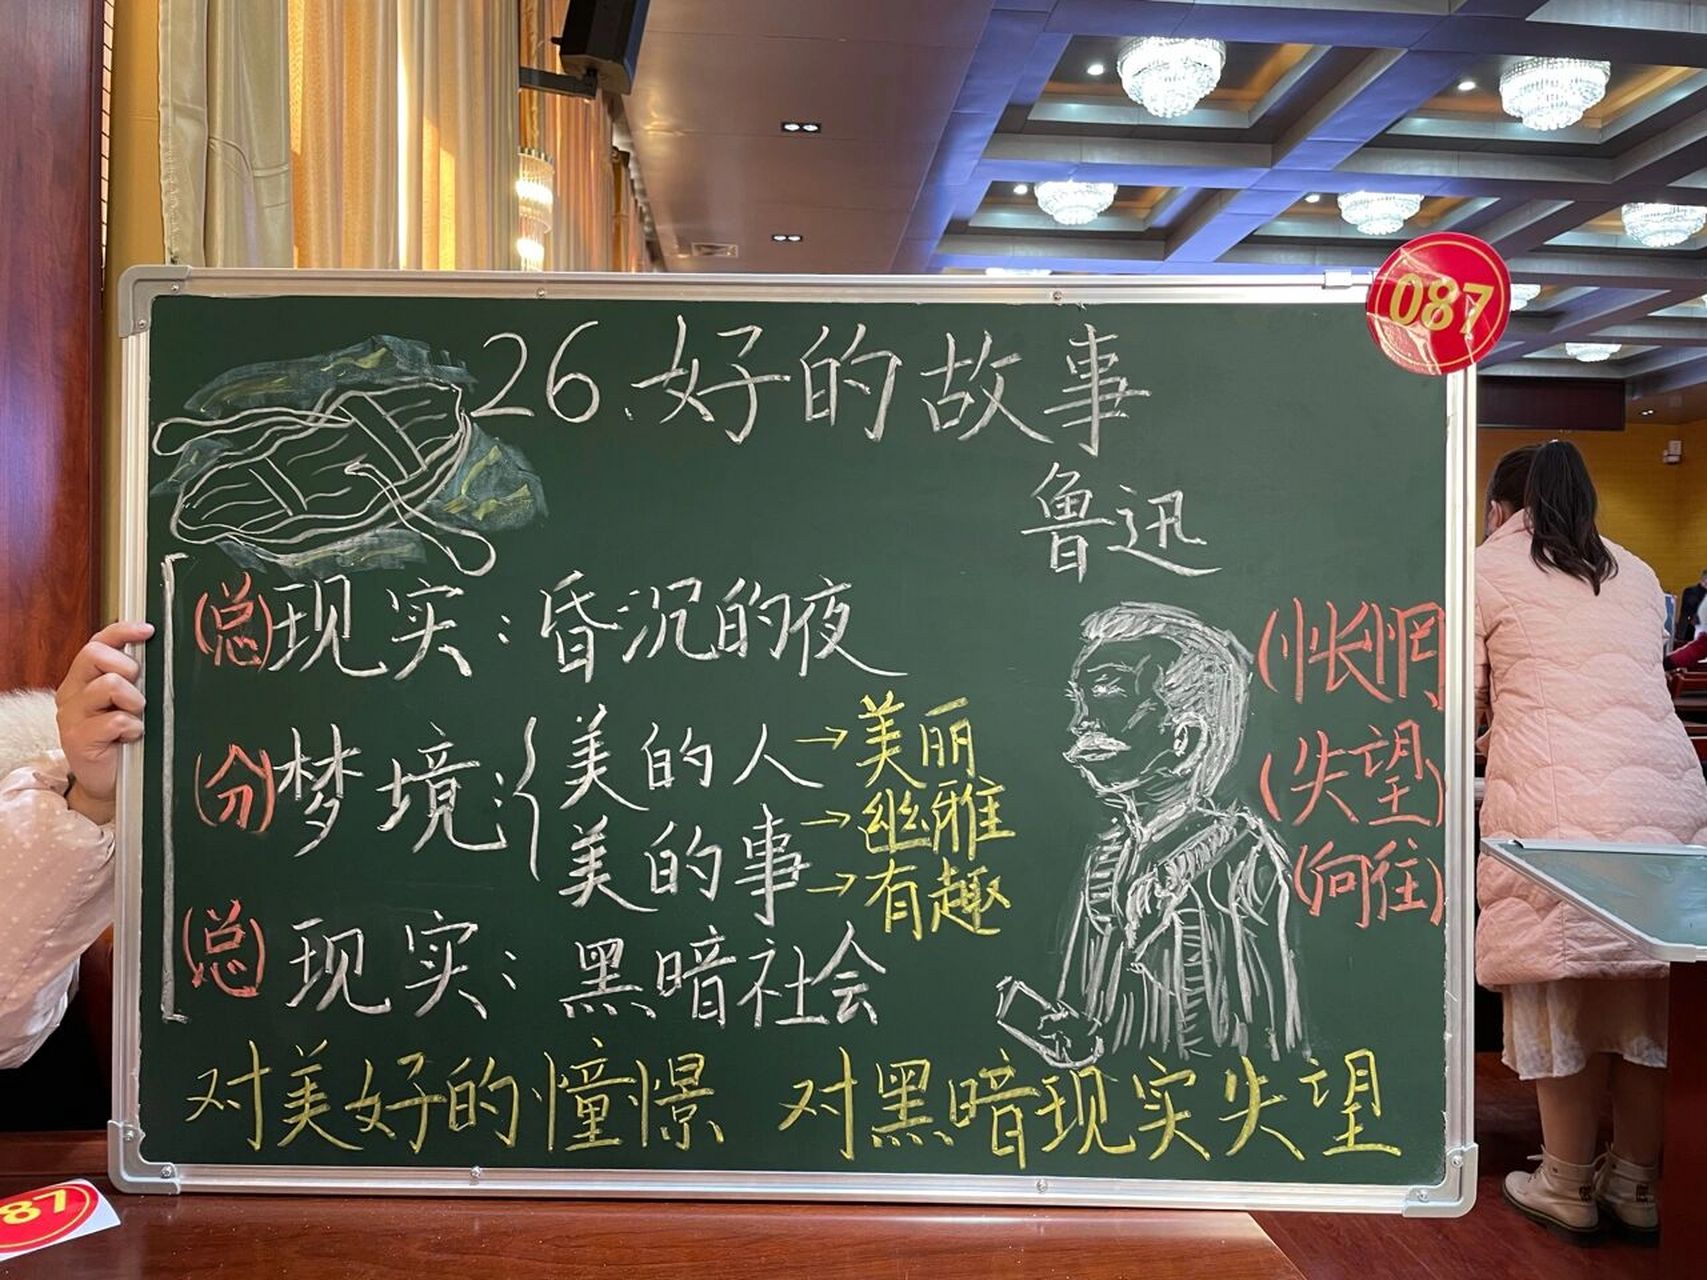 087
26.好的故事
鲁迅
(总)现实:昏沉的夜
(怅惘
(分)梦境:{美的人→美丽
→幽雅
美的事→有趣
(失望)
(向往)
(总)现实:黑暗社会
对美好的憧憬 对黑暗现实失望
87